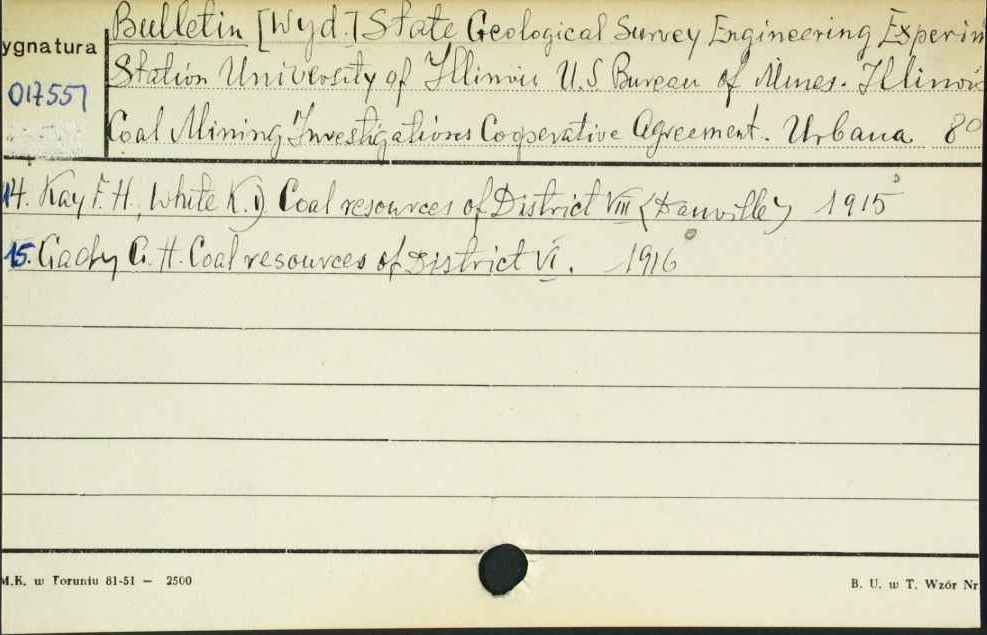 Bulletin [Wyd.] State Geological Survey Engineering Experim
ygnatura
Station University of Illinois U.S Bureau of Mines. Illinois
017557
Coal Mining Investigations Cooperative Agreement. Urbana 8°
14. Kay F. H., White K. D. Coal resources of District VIII (Danville) 1915
15. Cady G. H. Coal resources of District VI. 1916
M.K. w Toruniu 81-51 — 2500
B. U. w T. Wzór Nr